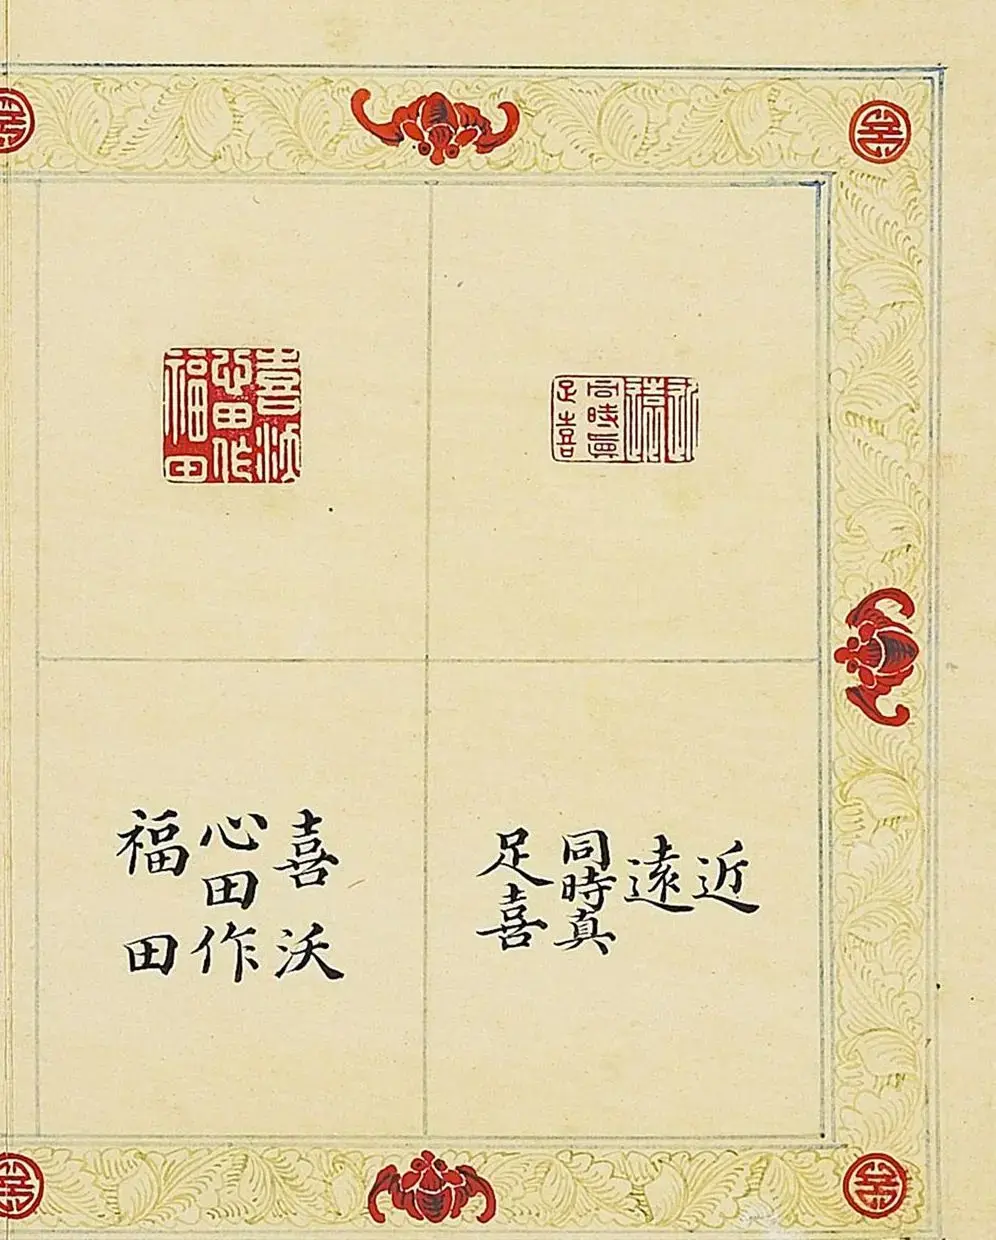 近
遠
同時真
足喜
喜沃
心田作
福田
近
遠
同時真
足喜
喜沃
心田作
福田